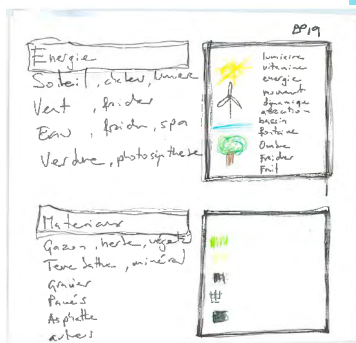 Energie
Soleil, chaleur, lumiere
Vent, froideur
Eau, froideur, spa
Verdure, photosynthese
lumiere
vitamine
energie
mouvement
dynamique
attraction
bassin
fontaine
Ombre
Froideur
Fruit
Materiaux
Gazon, herbe, végétal
Terre battue, minéral
Gravier
Pavés
Asphalte
arbres